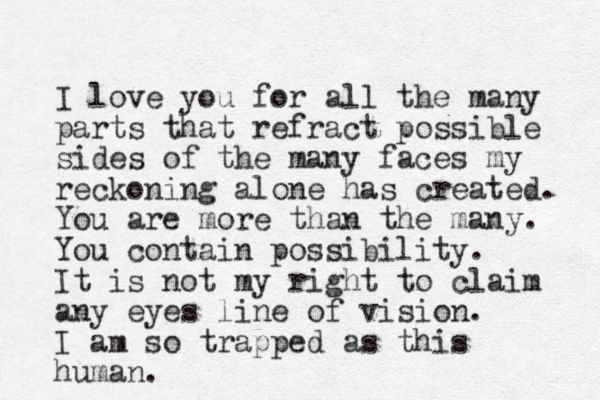 I love you for all the many
parts that refract possible
sides of the many faces my
reckoning alone has created.
You are more than the many.
You contain possibility.
It is not my right to claim
any eyes line of vision.
I am so trapped as this
human.